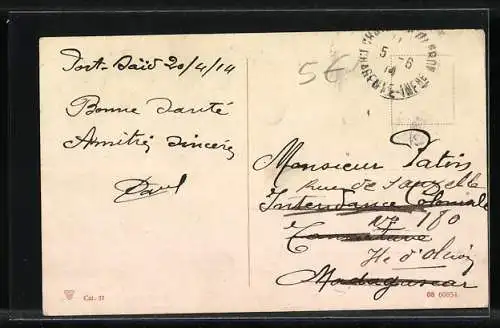 Port-Saïd 20/4/14
Bonne Santé
Amitiés Sincères
Paul
5€
5 -6
14
Monsieur Patin
Rue de
Intendance Coloniale
N° 180
Tananarive
Ile d'Oléron
Madagascar
Cat. 31
08 60054